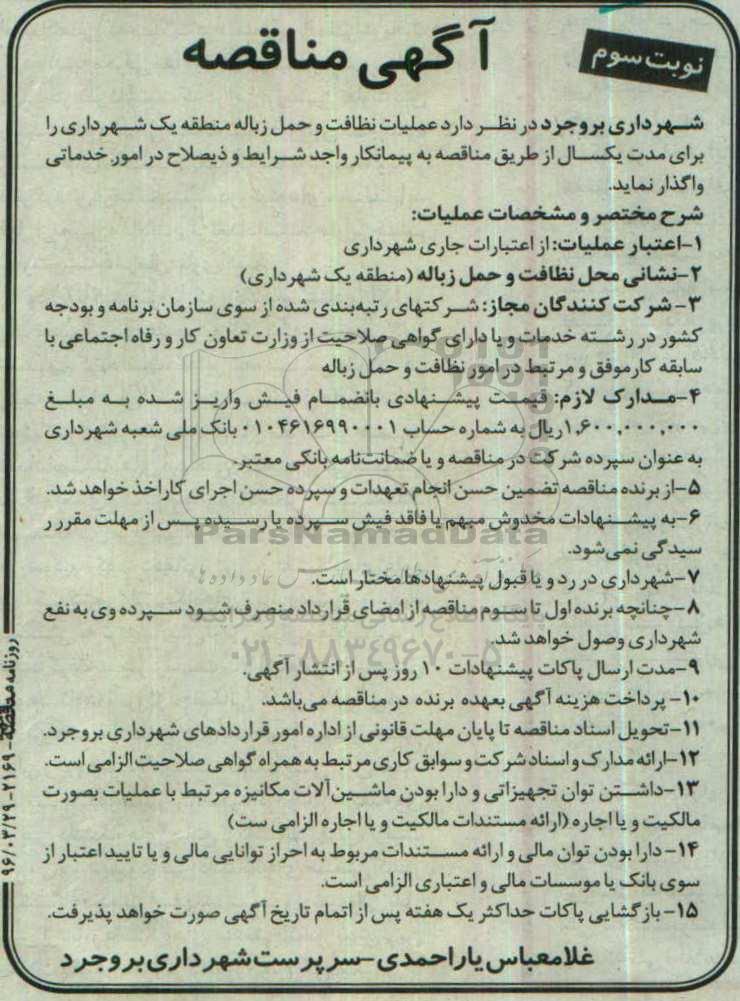 نوبت سوم
آگهی مناقصه
شهرداری بروجرد در نظر دارد عملیات نظافت و حمل زباله منطقه یک شهرداری را
برای مدت یکسال از طریق مناقصه به پیمانکار واجد شرایط و ذیصلاح در امور خدماتی
واگذار نماید.
شرح مختصر و مشخصات عملیات:
۱-اعتبار عملیات: از اعتبارات جاری شهرداری
۲-نشانی محل نظافت و حمل زباله (منطقه یک شهرداری)
۳-شرکت کنندگان مجاز: شرکتهای رتبه‌بندی شده از سوی سازمان برنامه و بودجه
کشور در رشته خدمات و یا دارای گواهی صلاحیت از وزارت تعاون کار و رفاه اجتماعی با
سابقه کار موفق و مرتبط در امور نظافت و حمل زباله
۴-مدارک لازم: قیمت پیشنهادی بانضمام فیش واریز شده به مبلغ
۱,۶۰۰,۰۰۰,۰۰۰ریال به شماره حساب ۰۱۰۴۶۱۶۹۹۰۰۰۱ بانک ملی شعبه شهرداری
به عنوان سپرده شرکت در مناقصه و یا ضمانت‌نامه بانکی معتبر.
۵-از برنده مناقصه تضمین حسن انجام تعهدات و سپرده حسن اجرای کار اخذ خواهد شد.
۶-به پیشنهادات مخدوش مبهم یا فاقد فیش سپرده یا رسیده پس از مهلت مقرر ر
سیدگی نمی‌شود.
۷-شهرداری در رد و یا قبول پیشنهادها مختار است.
۸-چنانچه برنده اول تا سوم مناقصه از امضای قرارداد منصرف شود سپرده وی به نفع
شهرداری وصول خواهد شد.
۹-مدت ارسال پاکات پیشنهادات ۱۰ روز پس از انتشار آگهی.
۱۰- پرداخت هزینه آگهی بعهده برنده در مناقصه می‌باشد.
۱۱-تحویل اسناد مناقصه تا پایان مهلت قانونی از اداره امور قراردادهای شهرداری بروجرد.
۱۲-ارائه مدارک و اسناد شرکت و سوابق کاری مرتبط به همراه گواهی صلاحیت الزامی است.
۱۳-داشتن توان تجهیزاتی و دارا بودن ماشین‌آلات مکانیزه مرتبط با عملیات بصورت
مالکیت و یا اجاره (ارائه مستندات مالکیت و یا اجاره الزامی ست)
۱۴- دارا بودن توان مالی و ارائه مستندات مربوط به احراز توانایی مالی و یا تایید اعتبار از
سوی بانک یا موسسات مالی و اعتباری الزامی است.
۱۵- بازگشایی پاکات حداکثر یک هفته پس از اتمام تاریخ آگهی صورت خواهد پذیرفت.
غلامعباس یاراحمدی-سرپرست شهرداری بروجرد
روزنامه مناقصه-۲۱۶۹-۹۶/۰۳/۲۹
ParsNamadData
۰۲۱-۸۸۳۴۹۶۷۰-۵